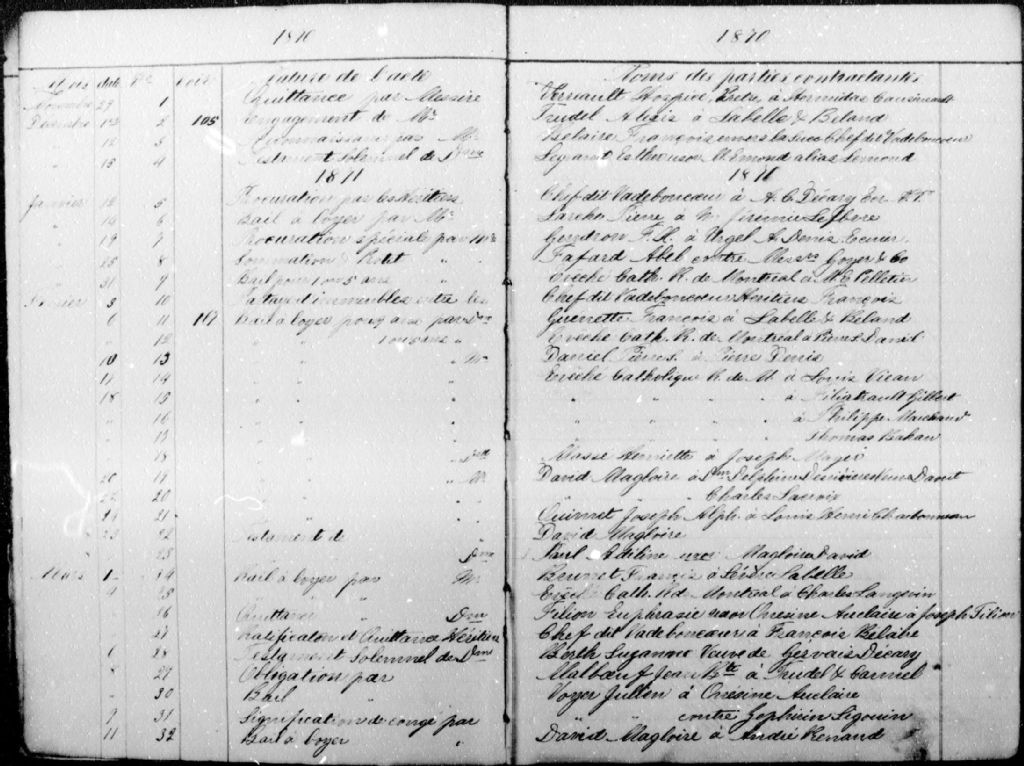 1870 1870
Mois date No Nature de l'acte Noms des parties contractantes
Novembre 29 1 Quittance par Messire Verreault Hospice, Ptre, à Hormidas Causineault
Décembre 2 105 Engagement de Mr Trudel Alexis à Labelle & Beland
" 12 3 Reconnaissance par Mr Belaire François envers la Succ Chef dit Vadeboncoeur
" 15 4 Testament Solemnel de Dame Esther uxor M. Emond alias Lemond
1871 1871
Janvier 12 5 Procuration par les Héritiers Chef dit Vadeboncoeur à A. C. Décary Ecr N.P.
" 14 6 Bail à loyer par Mr Pierre à Mr Jérémie Lefbere
" 19 7 Procuration spéciale par Mr Gendron F. X. à Urgel A. Denis Ecuier.
" 25 8 Sommation & Protêt " Fafard Abel contre Messrs Goyer & Co
" 31 9 Bail pour 1 ou 5 ans " Evêché Cath. R. de Montréal à M. C. Pelletier
Février 3 10 Partage d'immeubles entre les Chef dit Vadeboncoeur Héritiers François
" 6 11 107 Bail à loyer pour 3 ans par Dme Guenette François à Labelle & Beland
" 12 " " 1 ou 5 ans " Evêché Cath. R. de Montréal à Pierre David
10 13 " " " Mr Daniel Pierre à Pierre Denis
17 14 " " " Evêché Catholique R. de M. à Louis Vicau
18 15 " " " " à Filiatrault Gilbert
" 16 " " à Philippe Marchand
" 17 " " Thomas Bakan
" 18 " Dlle Massé Henriette à Joseph Mayer
20 19 " " Mr David Magloire à Dme Delphine
22 20 " " Charles Lacroix
" 21 " " Ouimet Joseph Alph. à Louis Henri Charbonneau
23 22 Testament de " David Magloire
" 23 Dme Paul Adeline uxor Magloire David
Mars 1 24 Bail à loyer par Mr Brunet Francis à Labelle
" 4 25 " " Evêché Cath. R. d. Montréal à Charles Langevin
" 26 Quittance " Dme Filion Euphrasie uxor Onésime Auclaire à Joseph Filion
" 27 Ratification et Quittance Héritiers Chef dit Vadeboncoeur à François Belaire
6 28 Testament Solemnel de Dme Berth Suzanne Veuve de Gervais Décary
8 29 Obligation par Malboeuf Jean Bte à Trudel & Carriel
" 30 Bail " Voyer Julien à Onésime Auclaire
9 31 Signification de congé par " " contre Zéphirin Sigouin
11 32 Bail à loyer " David Magloire à André Renaud